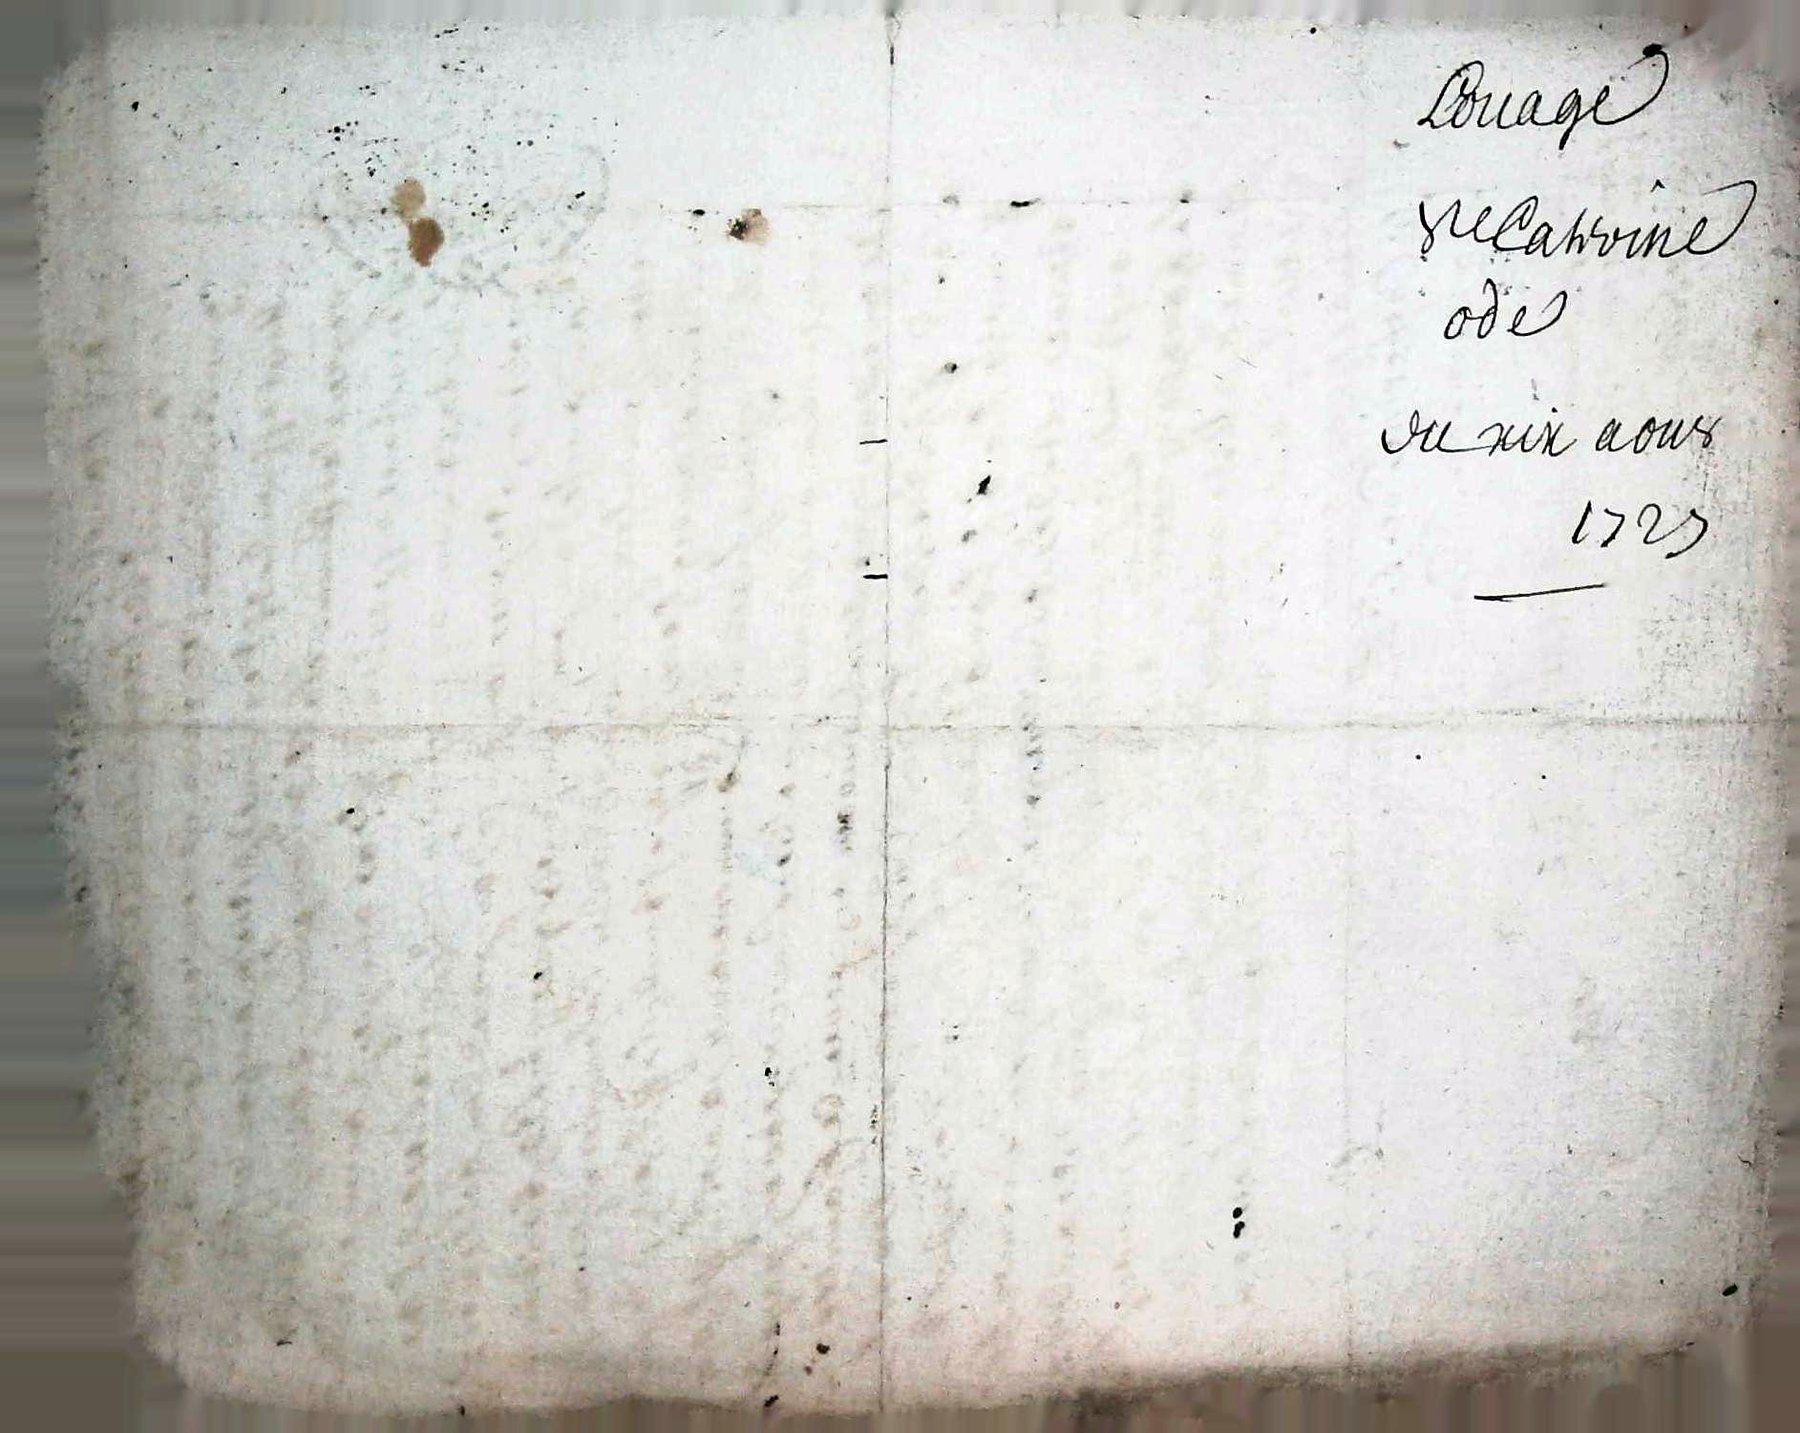 Louage
de Catiroine
ode
du xix aous
1727